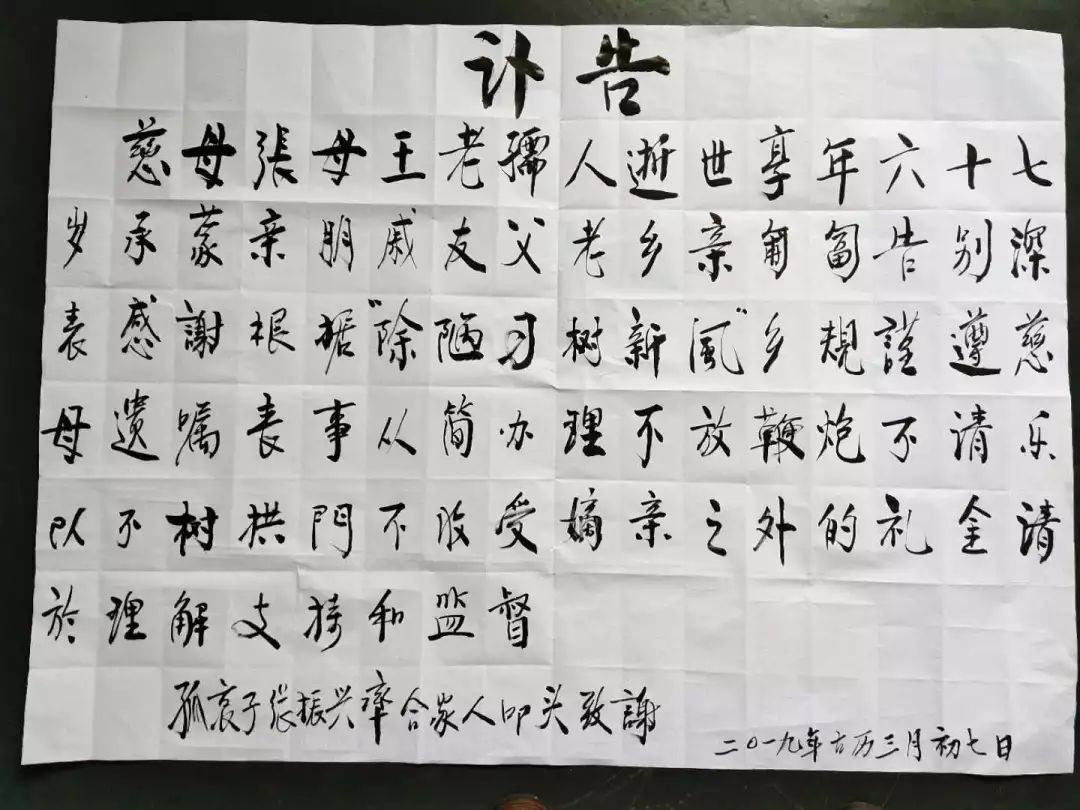 讣告
慈母張母王老孺人逝世享年六十七
岁承蒙亲朋戚友父老乡亲匍匐告别深
表感謝根据“除陋习树新風”乡規謹遵慈
母遺嘱丧事从简办理不放鞭炮不请乐
队不树拱門不收受嫡亲之外的礼金请
於理解支持和监督
孤哀子张振兴率合家人叩头致謝
二〇一九年古历三月初七日